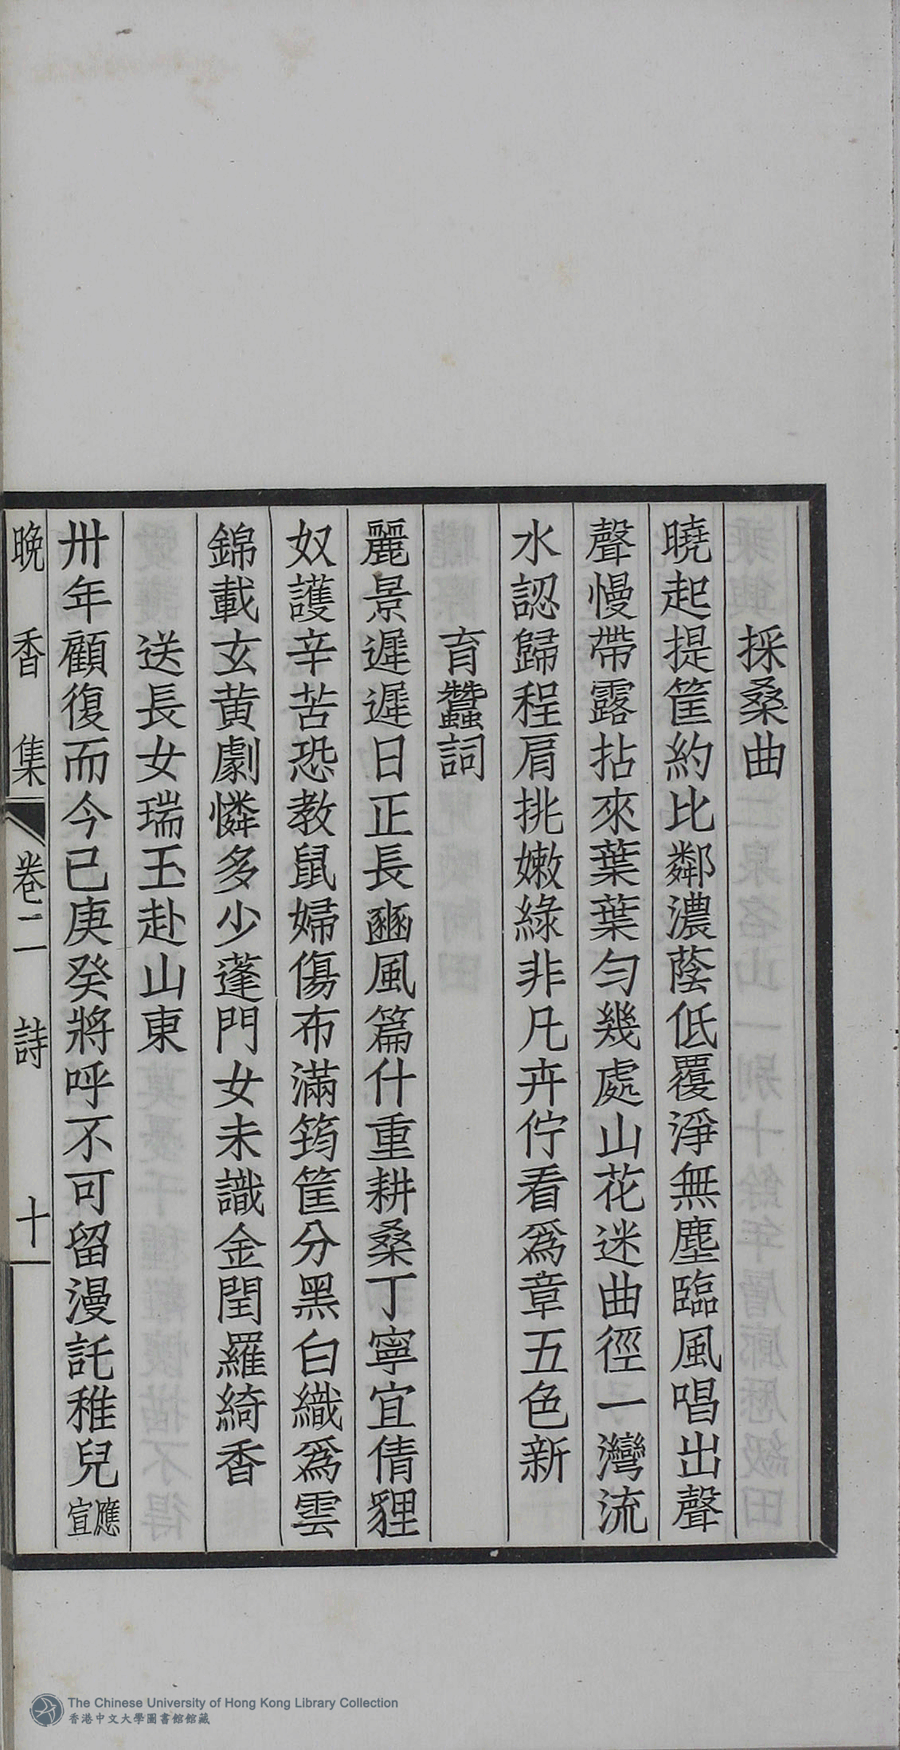 採桑曲
曉起提筐約比鄰濃蔭低覆淨無塵臨風唱出聲
聲慢帶露拈來葉葉勻幾處山花迷曲徑一灣流
水認歸程肩挑嫩綠非凡卉佇看爲章五色新
育蠶詞
麗景遲遲日正長豳風篇什重耕桑丁寧宜倩貍
奴護辛苦恐教鼠婦傷布滿筠筐分黑白織爲雲
錦載玄黄劇憐多少蓬門女未識金閨羅綺香
送長女瑞玉赴山東
卅年顧復而今已庚癸將呼不可留漫託稚兒應宣
晚香集 卷二 詩 十
The Chinese University of Hong Kong Library Collection
香港中文大學圖書館館藏